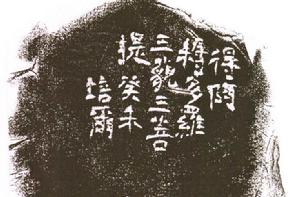 得阿
耨多羅
三藐三菩
提癸未
培爾